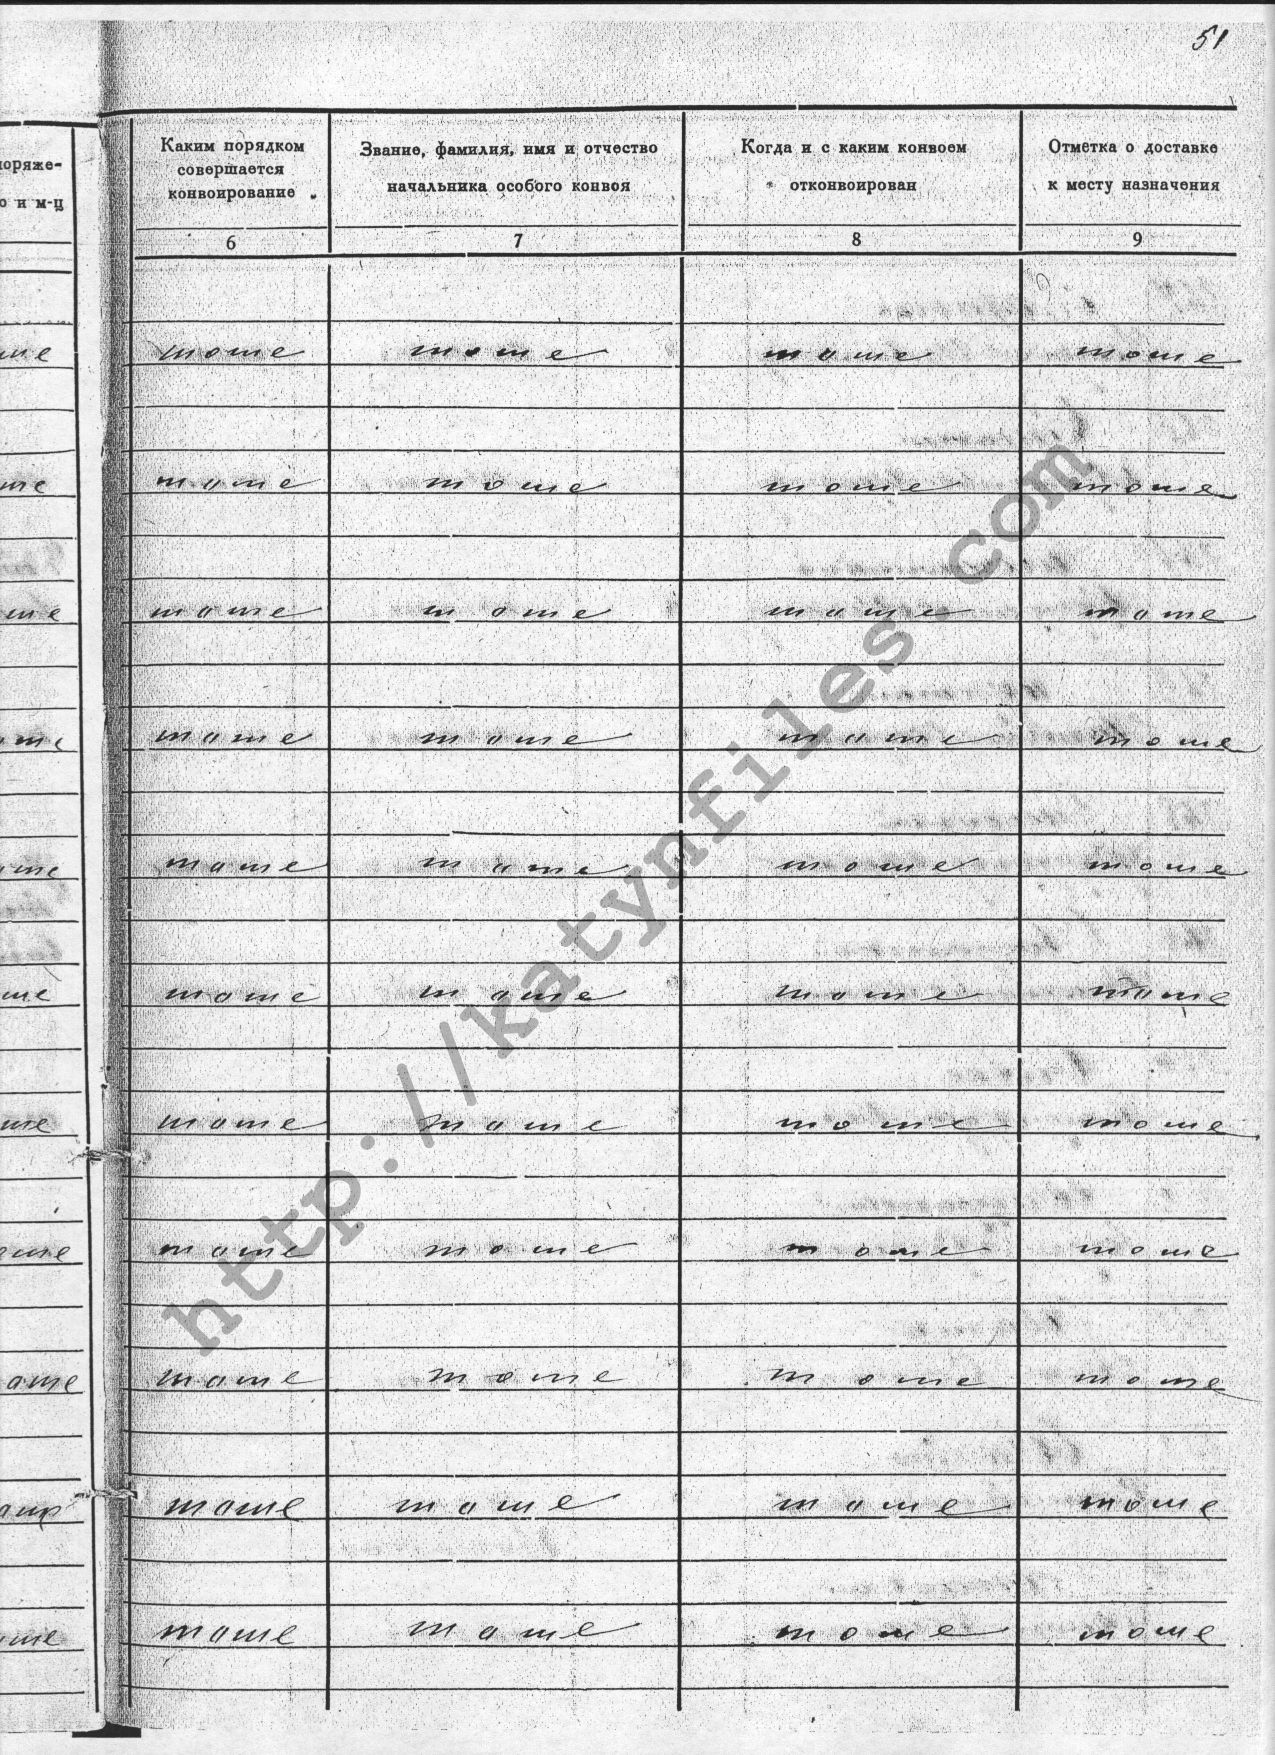 51
поряже-
о и м-ц
Каким порядком
совершается
конвоирование
Звание, фамилия, имя и отчество
начальника особого конвоя
Когда и с каким конвоем
отконвоирован
Отметка о доставке
к месту назначения
6 7 8 9
тоже тоже тоже тоже
тоже тоже тоже тоже
тоже тоже тоже тоже
тоже тоже тоже тоже
тоже тоже тоже тоже
тоже тоже тоже тоже
тоже тоже тоже тоже
тоже тоже тоже тоже
тоже тоже тоже тоже
тоже тоже тоже тоже
тоже тоже тоже тоже
http://katynfiles.com